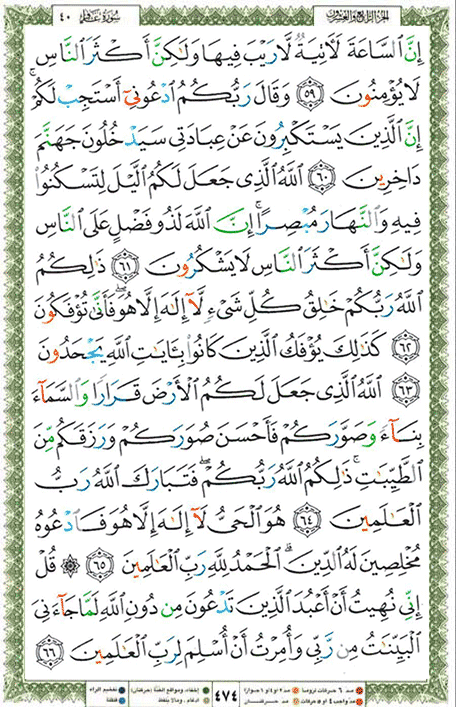 الجزء الرابع والعشرون سورة غافر ٤٠
إِنَّ ٱلسَّاعَةَ لَءَاتِيَةٌ لَّا رَيْبَ فِيهَا وَلَٰكِنَّ أَكْثَرَ ٱلنَّاسِ
لَا يُؤْمِنُونَ ٥٩ وَقَالَ رَبُّكُمُ ٱدْعُونِىٓ أَسْتَجِبْ لَكُمْ ۚ
إِنَّ ٱلَّذِينَ يَسْتَكْبِرُونَ عَنْ عِبَادَتِى سَيَدْخُلُونَ جَهَنَّمَ
دَاخِرِينَ ٦٠ ٱللَّهُ ٱلَّذِى جَعَلَ لَكُمُ ٱلَّيْلَ لِتَسْكُنُوا۟
فِيهِ وَٱلنَّهَارَ مُبْصِرًا ۚ إِنَّ ٱللَّهَ لَذُو فَضْلٍ عَلَى ٱلنَّاسِ
وَلَٰكِنَّ أَكْثَرَ ٱلنَّاسِ لَا يَشْكُرُونَ ٦١ ذَٰلِكُمُ
ٱللَّهُ رَبُّكُمْ خَٰلِقُ كُلِّ شَىْءٍ لَّآ إِلَٰهَ إِلَّا هُوَ ۖ فَأَنَّىٰ تُؤْفَكُونَ
٦٢ كَذَٰلِكَ يُؤْفَكُ ٱلَّذِينَ كَانُوا۟ بِـَٔايَٰتِ ٱللَّهِ يَجْحَدُونَ
٦٣ ٱللَّهُ ٱلَّذِى جَعَلَ لَكُمُ ٱلْأَرْضَ قَرَارًا وَٱلسَّمَآءَ
بِنَآءً وَصَوَّرَكُمْ فَأَحْسَنَ صُوَرَكُمْ وَرَزَقَكُم مِّنَ
ٱلطَّيِّبَٰتِ ۚ ذَٰلِكُمُ ٱللَّهُ رَبُّكُمْ ۖ فَتَبَارَكَ ٱللَّهُ رَبُّ
ٱلْعَٰلَمِينَ ٦٤ هُوَ ٱلْحَىُّ لَآ إِلَٰهَ إِلَّا هُوَ فَٱدْعُوهُ
مُخْلِصِينَ لَهُ ٱلدِّينَ ۗ ٱلْحَمْدُ لِلَّهِ رَبِّ ٱلْعَٰلَمِينَ ٦٥ ۞ قُلْ
إِنِّى نُهِيتُ أَنْ أَعْبُدَ ٱلَّذِينَ تَدْعُونَ مِن دُونِ ٱللَّهِ لَمَّا جَآءَنِىَ
ٱلْبَيِّنَٰتُ مِن رَّبِّى وَأُمِرْتُ أَنْ أُسْلِمَ لِرَبِّ ٱلْعَٰلَمِينَ ٦٦
٤٧٤
مد ٦ حركات لزوماً مد ٢ او ٤ او ٦ جوازاً إخفاء، ومواقع الغنّة (حركتان) تفخيم الراء
مد واجب ٤ او ٥ حركات مد حركتان ادغام، ومالا يلفظ قلقلة